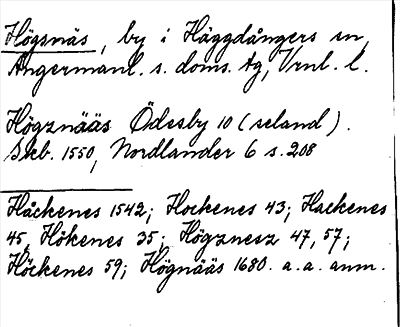 Högsnäs, by i Häggdångers sn,
Ångermanl. s. doms. tg, Vrnl. l.
Högznääs Ödesby 10 (seland).
Skb. 1550, Nordlander 6 s. 208
Håckenes 1542; Hockenes 43; Hackenes
45, Hökenes 35; Högznesz 47, 57;
Höckenes 59; Högnääs 1680. a. a. anm.